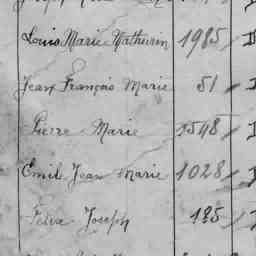 Louis Marie Mathurin 1985
Jean François Marie 51
Pierre Marie 1548
Emil Jean Marie 1028
Felix Joseph 185